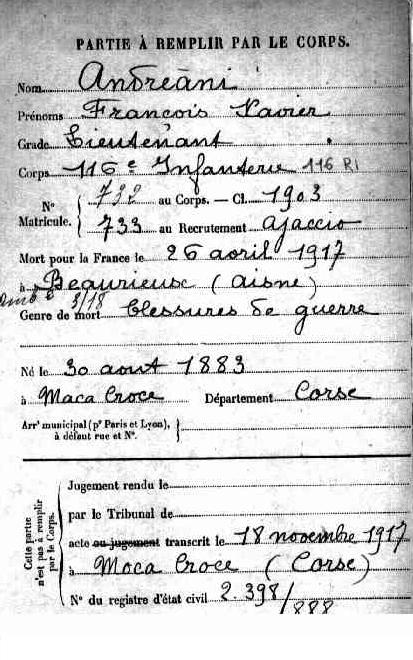 PARTIE À REMPLIR PAR LE CORPS.
Nom Andréani
Prénoms François Xavier
Grade Lieutenant
Corps 116e Infanterie 116 RI
N° Matricule. { 732 au Corps. — Cl. 1903
733 au Recrutement Ajaccio
Mort pour la France le 26 avril 1917
à Beaurieux (Aisne)
3/18
Genre de mort blessures de guerre
Né le 30 aout 1883
à Maca Croce Département Corse
Arrt municipal (pr Paris et Lyon), à défaut rue et N°.
Cette partie n'est pas à remplir par le Corps.
Jugement rendu le
par le Tribunal de
acte ou jugement transcrit le 18 novembre 1917
à Moca Croce (Corse)
N° du registre d'état civil 2.398/888